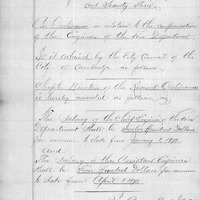 and Seventy Three.
An Ordinance in relation to the compensation
of the Engineers of the Fire Department
Be it ordained by the City Council of the
City of Cambridge as follows.
Chapter of the Revised Ordinances
is hereby amended as follows, viz,
The Salary of the Chief Engineer of the Fire
Department shall be Twelve Hundred Dollars
per annum to date from January 1, 1890.
and
The Salary of the Assistant Engineer
shall be Hundred Dollars per annum
to date from April 1, 1890.